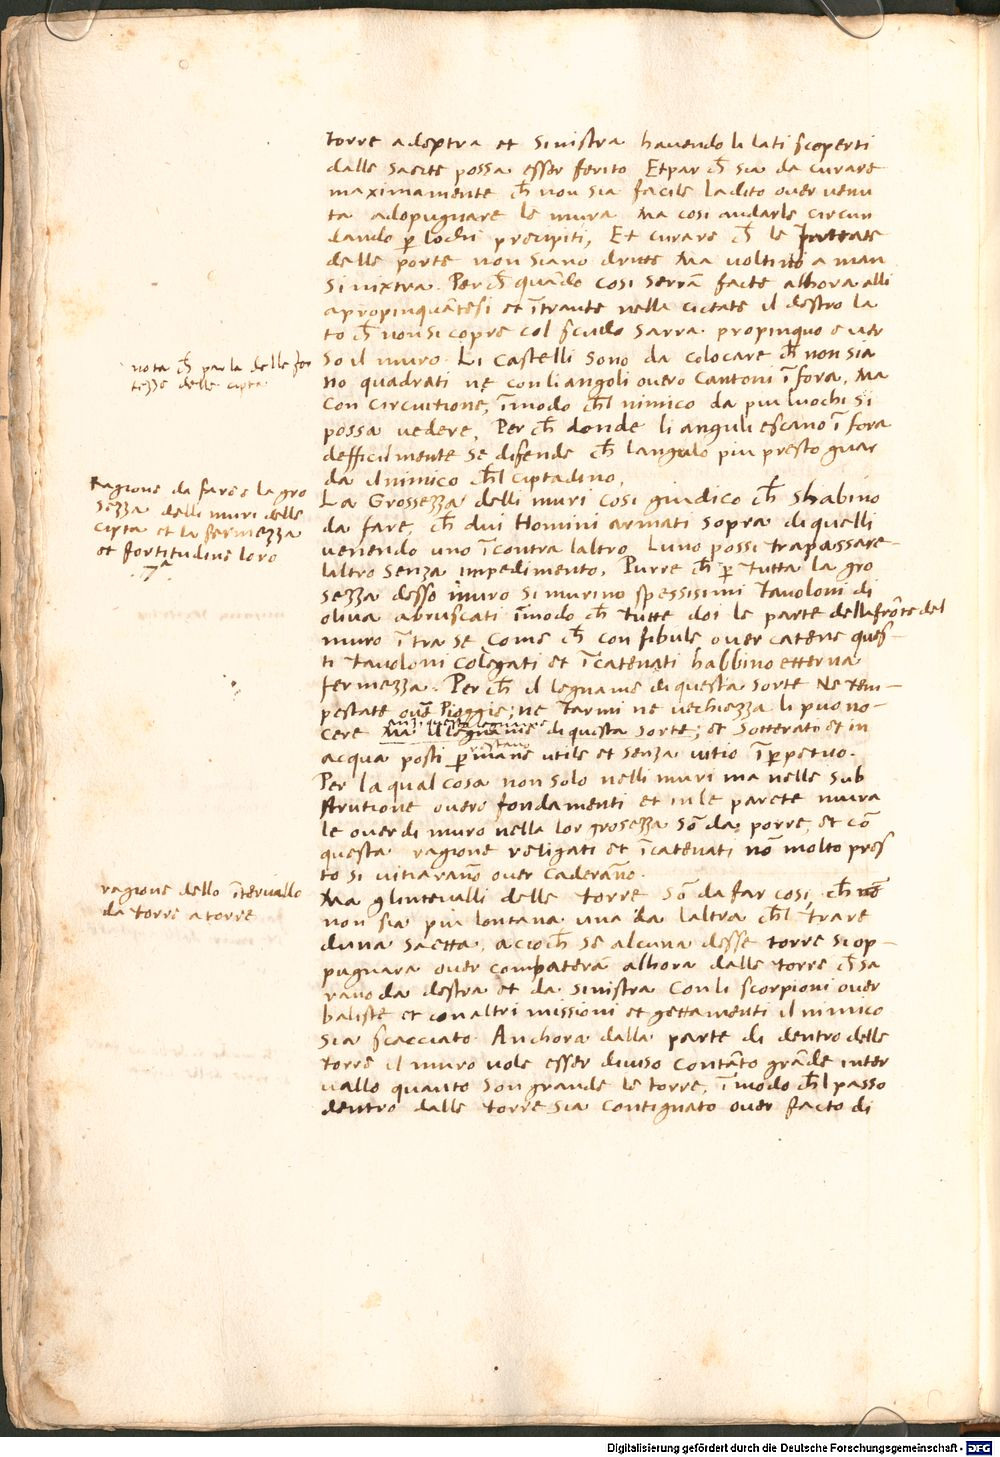 torre adextra et sinistra havendo li lati scoperti
dalle saette possa esser ferito Et par ch̄ sia da curare
maximamente ch̄ non sia facile ladito over venu
ta adopugnare le mura Ma cosi andarle circun
dando p̄ lochi precipiti, Et curare ch̄ le
delle porte non siano dritte Ma voltino a man
sinixtra. Per ch̄ quādo cosi serrā facte alhora alli
apropinquātesi et ītrante nella cictate il destro la
to ch̄ non si copre col scudo sarra propinquo e ver
so il muro. Li Castelli sono da colocare ch̄ non sia
no quadrati ne con li angoli overo Cantoni ī fora, Ma
con circuitione, īmodo ch̄l nimico da piu luochi si
possa vedere, Per ch̄ donde li anguli escano ī fora
defficilmente se difende ch̄ langulo piu presto guar
da il nimico ch̄l ciptadino,
nota ch̄ parla delle for
tezze delle cipta
La Grossezza delli muri cosi giudico ch̄ shabino
da fare, ch̄ dui Homini armati sopra di quelli
venendo uno īcontra laltro, Luno possi trapassare
laltro senza impedimento, Purre ch̄ p̄ tutta la gro
sezza desso muro si murino spessisimi tavoloni di
oliva abruscati īmodo ch̄ tutte doi le parte della frōte del
muro ītra se come ch̄ con fibule over catene ques-
ti tavoloni colegati et īcatenati habbino etterna
fermezza. Per ch̄ il legname di questa sorte Ne tem-
pestate ove Pioggie; ne Tarmi ne vechiezza li puo no-
cere Ma il legname di questa sorte; et sotterati et in
anzi questo legname
restano
acqua posti p̄mane utile et senza vitio īp̄petuo.
Ragione da fare la gro
sezza delli muri delle
cipta et la fermezza
et fortitudine loro
.7ª
Per la qual cosa non solo nelli muri ma nelle sub
strutione overo fondamenti et in le parete mura
le over di muro nella lor grosezza sō da porre, et cō
questa ragione religati et īcatenati nō molto pres
to si vitiaranō over caderāno.
Ma gl intevalli delle torre sō da far cosi, ch̄
non sia piu lontana una da laltra ch̄l trare
duna saetta, acioch̄ se alcuna desse torre si op-
pugnara over combaterā alhora dalle torre ch̄ sa
rano da destra et da sinistra con li scorpioni over
baliste et con altri missioni et gettamenti il nimico
sia scacciato. Anchora dalla parte di dentro delle
torre il muro vole esser diviso contāto grāde inter
vallo quanto son grande le torre, īmodo ch̄l passo
dentro dalle torre sia contignato over facto di
ragione dello ītervallo
da torre a torre
Digitalisierung gefördert durch die Deutsche Forschungsgemeinschaft - DFG